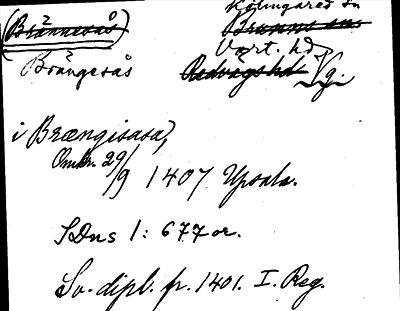 (Brännesås) Kölingared sn
Brunns sn
Vart. hd
Brängesås Redvägs hd Vg.
i Brængisasa,
Omkr. 29/9 1407 Upsala.
SDns 1: 677 or.
Sv. dipl. fr. 1401. I. Reg.